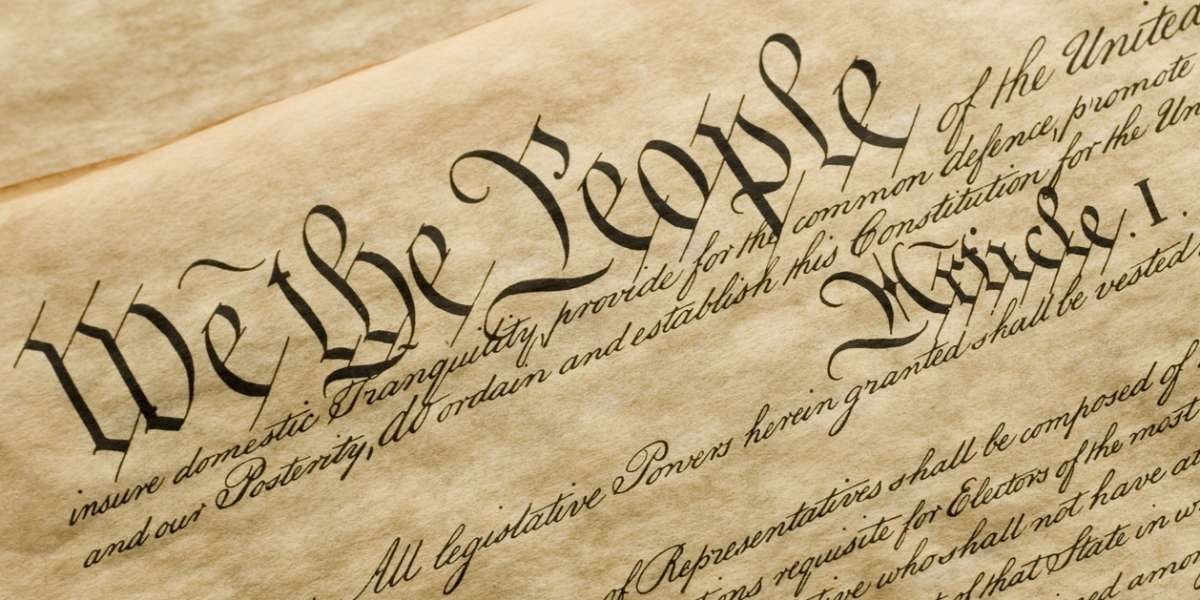 We the People of the United
insure domestic Tranquility, provide for the common defence, promote
and our Posterity, do ordain and establish this Constitution for the Un
Article. I.
All legislative Powers herein granted shall be vested
of Representatives shall be composed of
ons requisite for Electors of the most
tive who shall not have at
of that State in w
ed amon